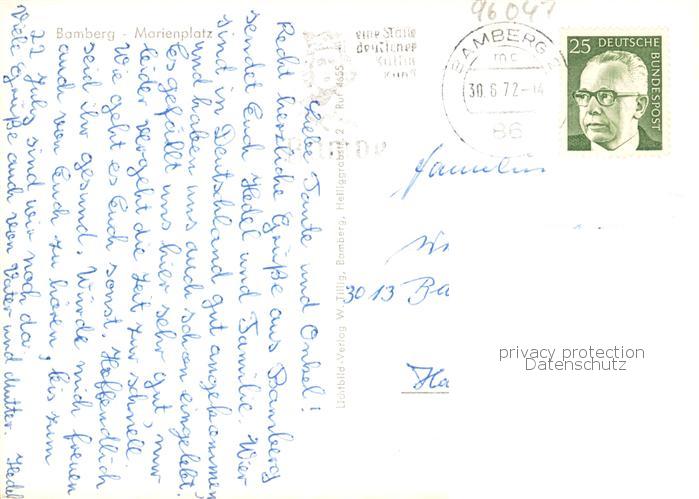 Bamberg - Marienplatz
Liebe Tante und Onkel!
Recht herzliche Grüße aus Bamberg
sendet Euch Hedel und Familie. Wir
sind in Deutschland gut angekommen
und haben uns auch schon eingelebt.
Es gefällt uns hier sehr gut, nur
leider vergeht die Zeit zur schnell.
Wie geht es Euch sonst. Hoffendlich
seid ihr gesund. Würde mich freuen
auch von Euch zu hören, bis zum
22 July sind wir noch da.
Viele Grüße auch von Vater und Mutter. Hedel
Lichtbild-Verlag W. Tillig, Bamberg, Heiliggrabstr. 2, Ruf 4655
96047
eine Stätte
deutscher
BAMBERG
mc
30.6.72-14
86
25 DEUTSCHE
BUNDESPOST
Familie
3013 Ba
Ha
privacy protection
Datenschutz